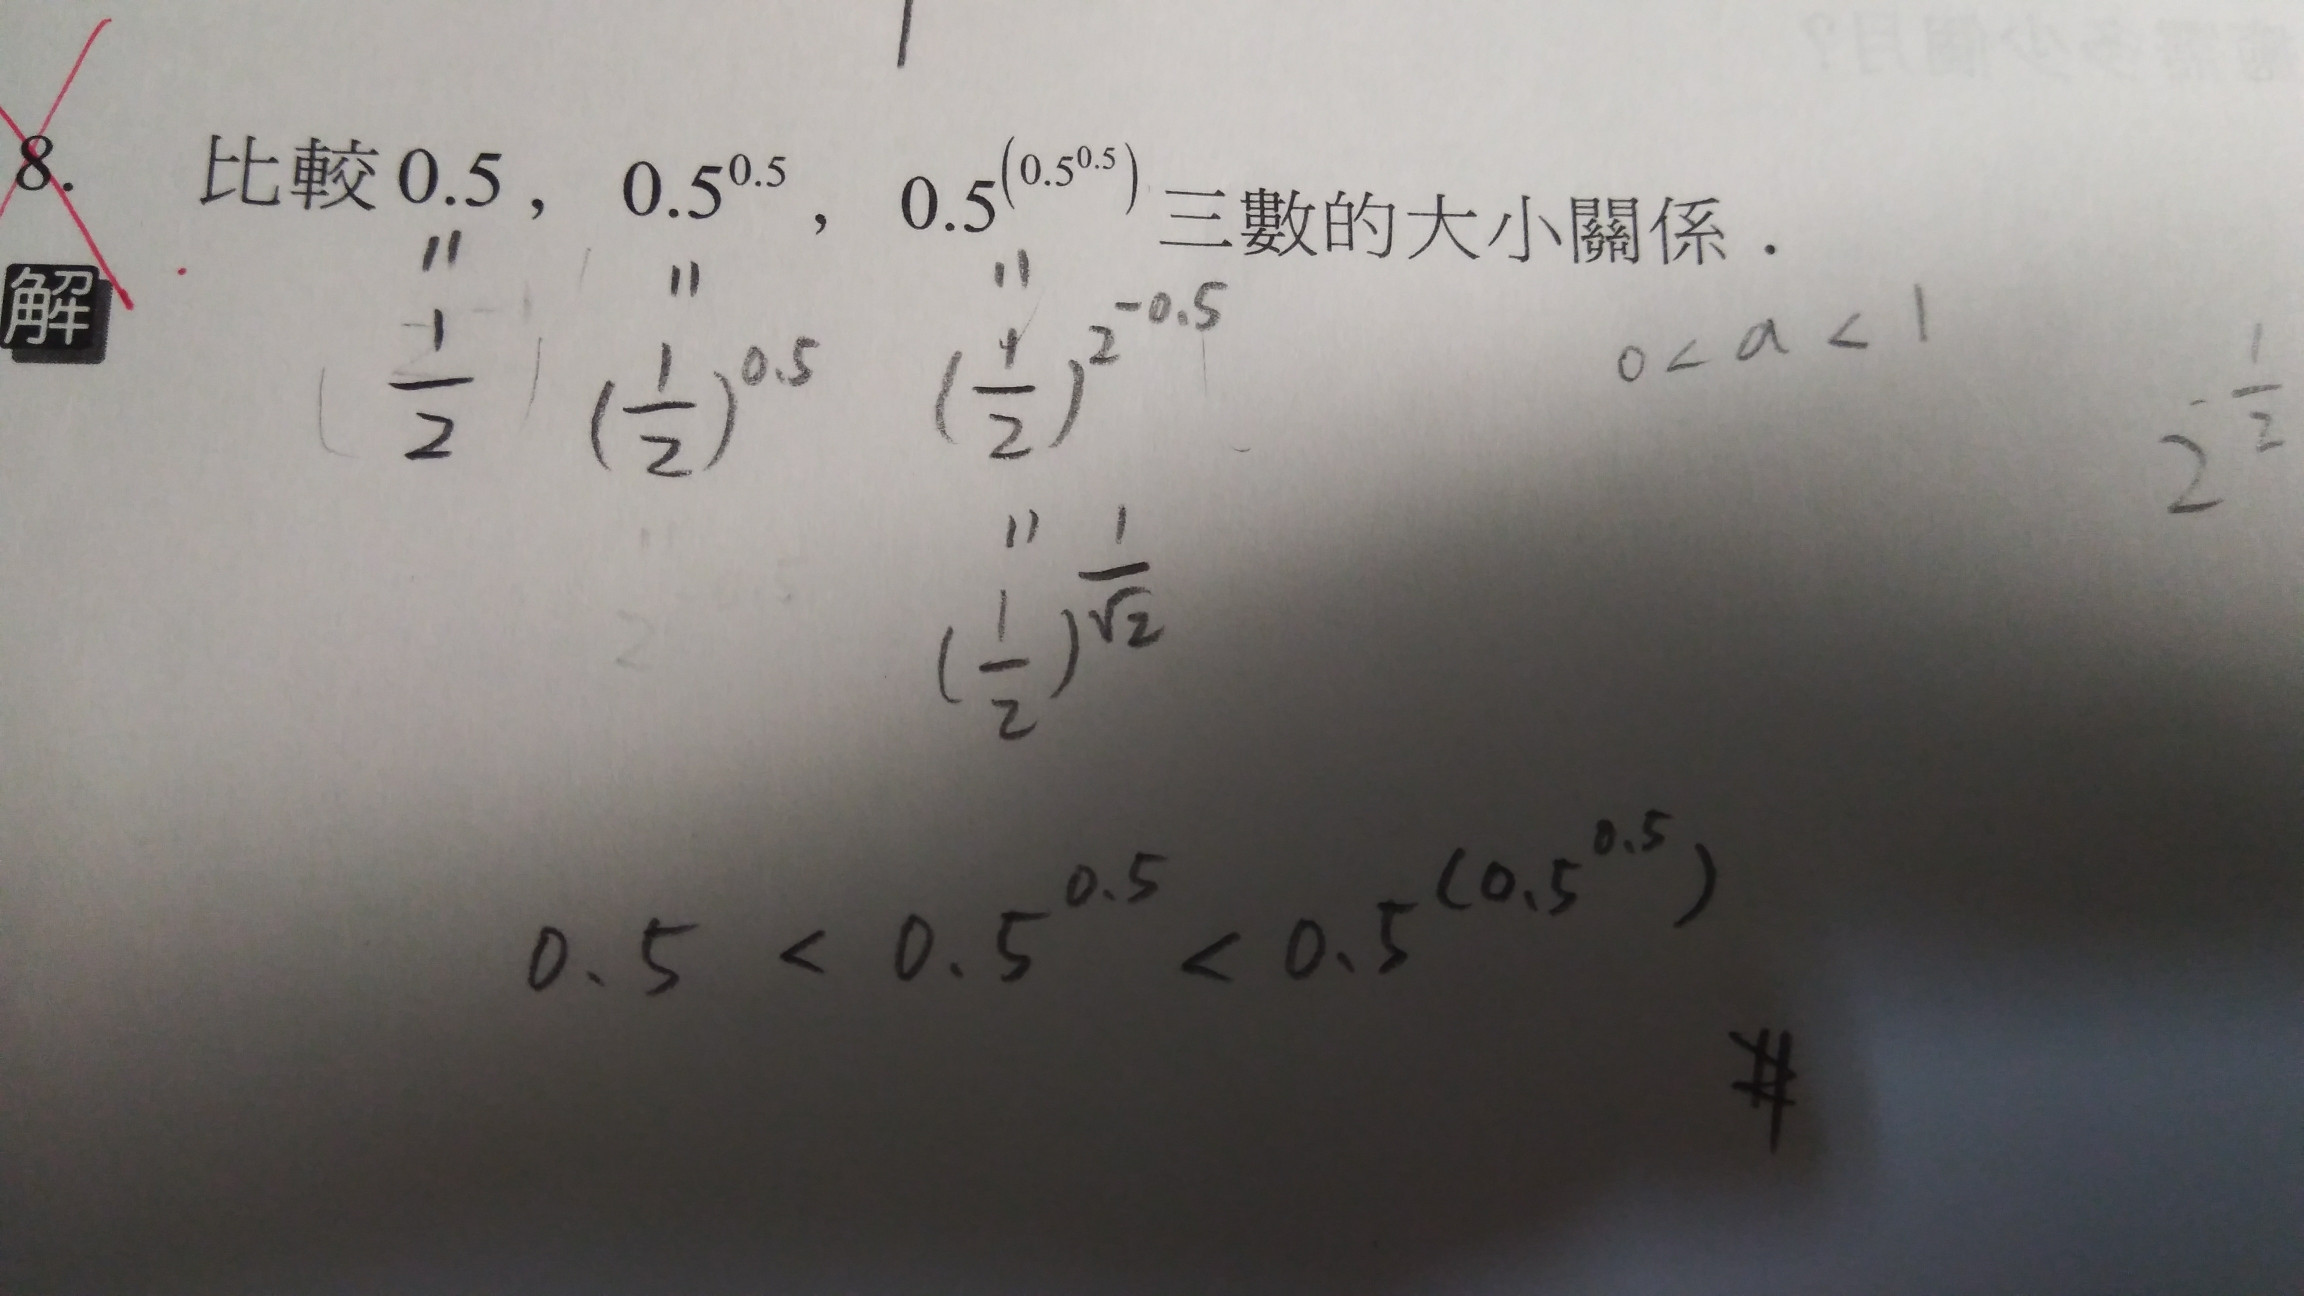 8. 比較 0.5， 0.5^0.5， 0.5^(0.5^0.5) 三數的大小關係．
解
= = =
1/2 (1/2)^0.5 (1/2)^2^-0.5 0<a<1 2^-1/2
=
(1/2)^1/√2
0.5 < 0.5^0.5 < 0.5^(0.5^0.5)
#